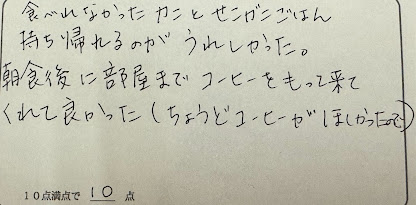 食べれなかったカニとせこガニごはん
持ち帰れるのがうれしかった。
朝食後に部屋までコーヒーをもって来て
くれて良かった(ちょうどコーヒーがほしかったので)
10点満点で 10 点